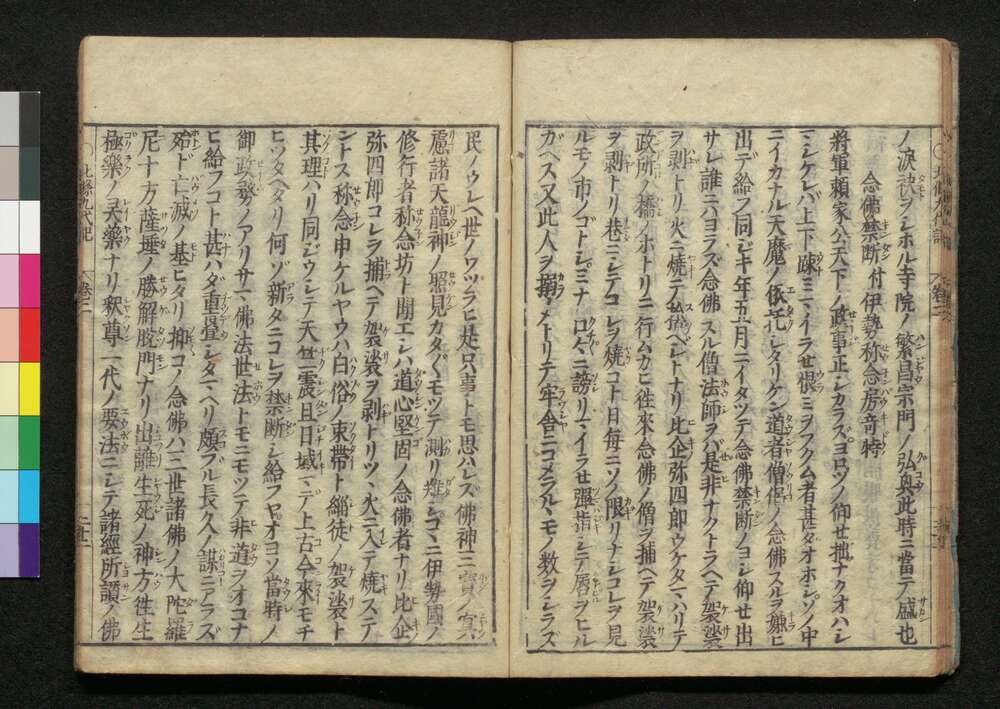 ノ涙袂ヲシホル寺院ノ繁昌宗門ノ弘興此時ニ當テ盛也
念佛禁断付伊勢称念房奇特
將軍頼家公天下ノ政事正シカラスヨロツノ仰セ拙ナクオハシ
マシケレバ上下踈ミマイラセ恨ミヲフクム者甚ダオホシソノ中
ニイカナル天魔ノ依托シタリケン道者僧侶ノ念佛スルヲ嫌ヒ
出テ給フ同ジキ年五月ニイタツテ念佛禁断ノヨシ仰セ出
サレ誰ニハヨラズ念佛スル僧法師ヲバ是非ナクトラヘテ袈裟
ヲ剥トリ火ニ焼テ捨ベシトナリ比企弥四郎ウケタマハリテ
政所ノ橋ノホトリニ行ムカヒ往來念佛ノ僧ヲ捕ヘテ袈裟
ヲ剥トリ巷ニシテコレヲ焼コト日毎ニソノ限リナシコレヲ見
ルモノ市ノゴトシミナ口々ニ謗リマイラセ彈指シテ唇ヲヒル
ガヘス又此人ヲ搦メトリテ牢舎ニコメラルヽモノ数ヲシラズ
民ノウレヘ世ノワヅラヒ是只事トモ思ハレズ佛神三寳ノ冥
慮諸天龍神ノ照見カタ〲モツテ測リ難シコヽニ伊勢國ノ
修行者称念坊ト聞エシハ道心堅固ノ念佛者ナリ比企
弥四郎コレヲ捕ヘテ袈裟ヲ剥トリツヽ火ニ入テ焼ステ
ントス称念申ケルヤウハ白俗ノ束帶ト緇徒ノ袈裟ト
其理ハリ同ジウシテ天竺震旦日域マデ上古今來モチ
ヒツタヘタリ何ゾ新タニコレヲ禁断シ給フヤオヨソ當時ノ
御政務ノアリサマ佛法世法トモニモツテ非道ヲオコナ
ヒ給フコト甚ハダ重疊シタマヘリ頗ブル長久ノ謀ニアラズ
殆ド亡滅ノ基ヒタリ抑コノ念佛ハ三世諸佛ノ大陀羅
尼十方薩埵ノ勝解脱門ナリ出離生死ノ神方徃生
極樂ノ灵藥ナリ釈尊一代ノ要法ニシテ諸經所讃ノ佛
北條九代記
卷二